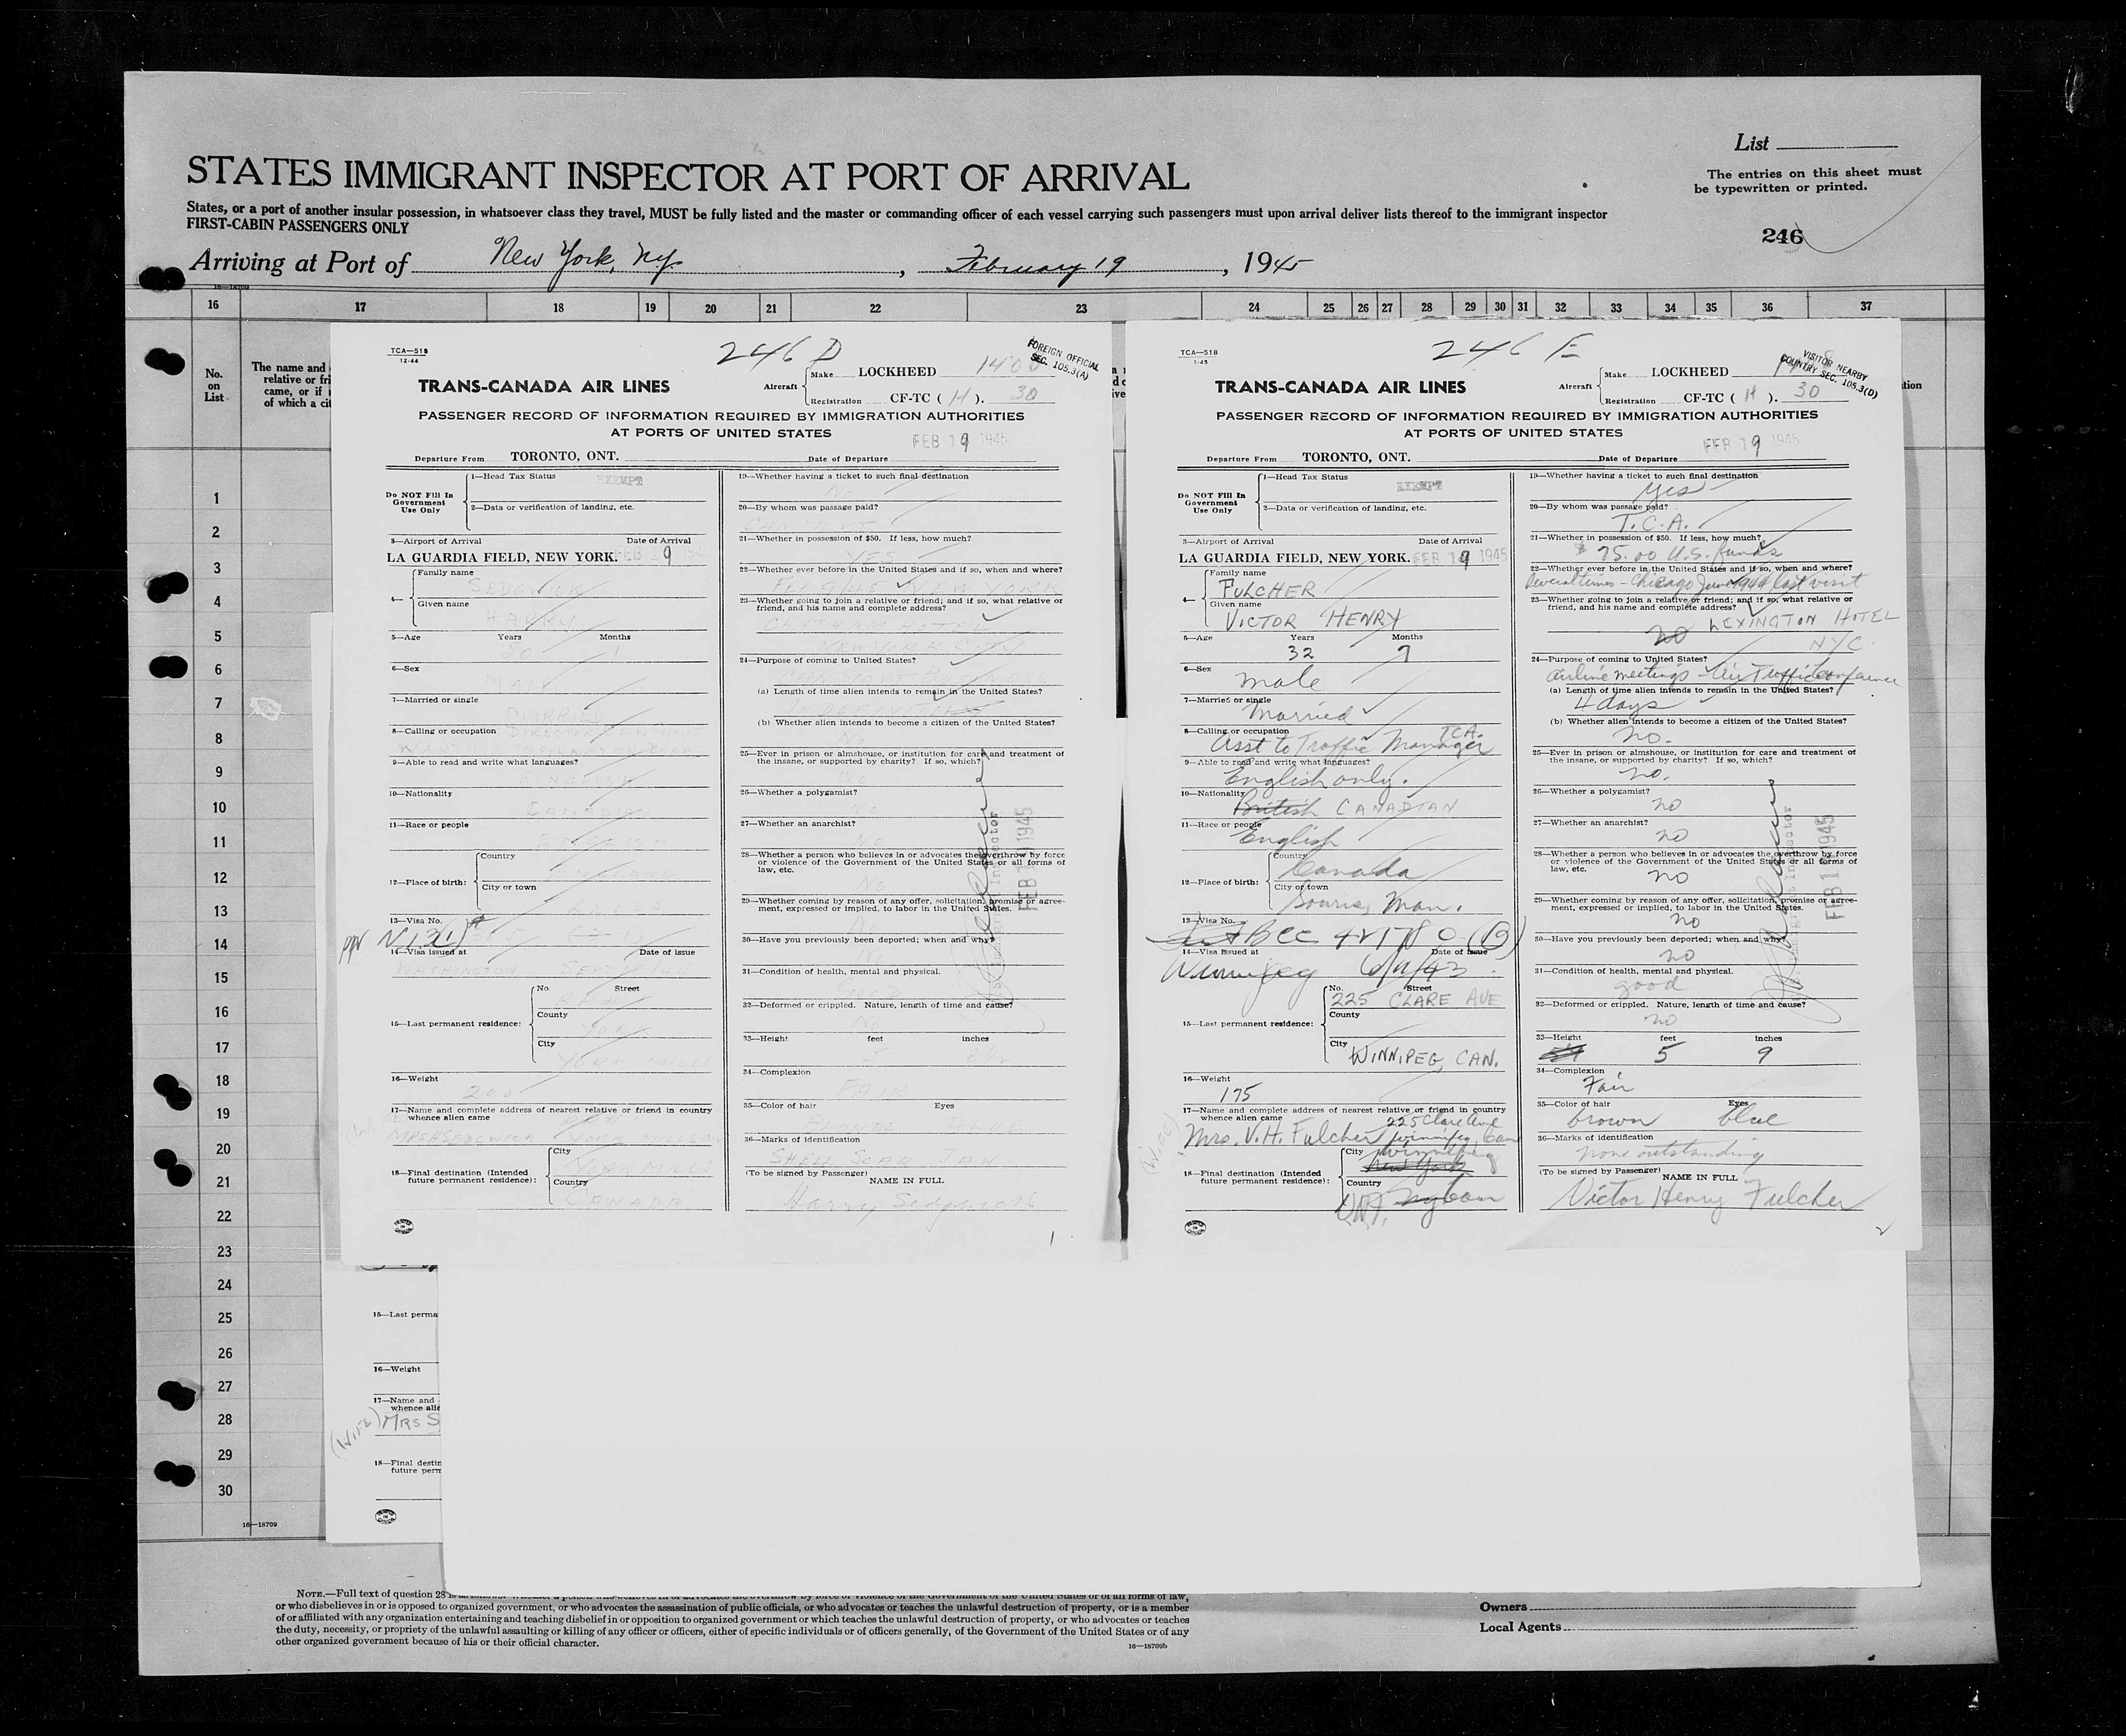 List
The entries on this sheet must
be typewritten or printed.
STATES IMMIGRANT INSPECTOR AT PORT OF ARRIVAL
States, or a port of another insular possession, in whatsoever class they travel, MUST be fully listed and the master or commanding officer of each vessel carrying such passengers must upon arrival deliver lists thereof to the immigrant inspector
FIRST-CABIN PASSENGERS ONLY
246
Arriving at Port of New York, N.Y. , February 19 , 1945
16—18709
16 17 18 19 20 21 22 23 24 25 26 27 28 29 30 31 32 33 34 35 36 37
No.
on
List
The name and
relative or fri
came, or if
of which a cit
1
2
3
4
5
6
7
8
9
10
11
12
13
14
15
16
17
18
19
20
21
22
23
24
25
26
27
28
29
30
16—18709
TCA—518
12-44
246 D
FOREIGN OFFICIAL
SEC. 105.3(A)
TRANS-CANADA AIR LINES
Aircraft
Make LOCKHEED
Registration CF-TC ( H ). 30
PASSENGER RECORD OF INFORMATION REQUIRED BY IMMIGRATION AUTHORITIES
AT PORTS OF UNITED STATES
FEB 19 1945
Departure From TORONTO, ONT. Date of Departure
Do NOT Fill In
Government
Use Only
1—Head Tax Status EXEMPT
2—Data or verification of landing, etc.
3—Airport of Arrival Date of Arrival
LA GUARDIA FIELD, NEW YORK. FEB 19 1945
4—
Family name
SEDGWICK
Given name
HARRY
5—Age Years Months
6—Sex
MALE
7—Married or single
MARRIED
8—Calling or occupation
9—Able to read and write what languages?
ENGLISH
10—Nationality
CANADIAN
11—Race or people
ENGLISH
12—Place of birth:
Country
ENGLAND
City or town
13—Visa No.
14—Visa issued at Date of issue
WASHINGTON
15—Last permanent residence:
No. Street
County
YORK
City
YORK MILLS
16—Weight
200
17—Name and complete address of nearest relative or friend in country
whence alien came
MRS H SEDGWICK
18—Final destination (Intended
future permanent residence):
City
YORK MILLS
Country
CANADA
19—Whether having a ticket to such final destination
20—By whom was passage paid?
21—Whether in possession of $50. If less, how much?
YES
22—Whether ever before in the United States and if so, when and where?
23—Whether going to join a relative or friend; and if so, what relative or
friend, and his name and complete address?
CHATHAM HOTEL
NEW YORK CITY
24—Purpose of coming to United States?
(a) Length of time alien intends to remain in the United States?
(b) Whether alien intends to become a citizen of the United States?
No
25—Ever in prison or almshouse, or institution for care and treatment of
the insane, or supported by charity? If so, which?
No
26—Whether a polygamist?
No
27—Whether an anarchist?
No
28—Whether a person who believes in or advocates the overthrow by force
or violence of the Government of the United States or all forms of
law, etc.
No
29—Whether coming by reason of any offer, solicitation, promise or agree-
ment, expressed or implied, to labor in the United States.
30—Have you previously been deported; when and why?
No
31—Condition of health, mental and physical.
32—Deformed or crippled. Nature, length of time and cause?
No
33—Height feet inches
34—Complexion
FAIR
35—Color of hair Eyes
BLUE
36—Marks of identification
SHELL SCAR JAW
(To be signed by Passenger)
NAME IN FULL
Harry Sedgwick
1
FEB 19 1945
TCA—518
1-45
246 E
VISITOR NEARBY
COUNTRY SEC. 105.3(D)
TRANS-CANADA AIR LINES
Aircraft
Make LOCKHEED
Registration CF-TC ( H ). 30
PASSENGER RECORD OF INFORMATION REQUIRED BY IMMIGRATION AUTHORITIES
AT PORTS OF UNITED STATES
FEB 19 1945
Departure From TORONTO, ONT. Date of Departure
Do NOT Fill In
Government
Use Only
1—Head Tax Status EXEMPT
2—Data or verification of landing, etc.
3—Airport of Arrival Date of Arrival
LA GUARDIA FIELD, NEW YORK. FEB 19 1945
4—
Family name
FULCHER
Given name
VICTOR HENRY
5—Age Years Months
32 7
6—Sex
male
7—Married or single
Married
8—Calling or occupation TCA.
Asst to Traffic Manager
9—Able to read and write what languages?
English only.
10—Nationality
British CANADIAN
11—Race or people
English
12—Place of birth:
Country
Canada
City or town
Souris, Man.
13—Visa No.
BCC 421780
14—Visa issued at Date of issue
Winnipeg
15—Last permanent residence:
No. Street
225 CLARE AVE
County
City
WINNIPEG, CAN.
16—Weight
175
17—Name and complete address of nearest relative or friend in country
whence alien came
225 Clare Ave
Mrs. V.H. Fulcher Winnipeg, Can
(WIFE)
18—Final destination (Intended
future permanent residence):
City Winnipeg
New York
Country
Can
19—Whether having a ticket to such final destination
yes
20—By whom was passage paid?
T.C.A.
21—Whether in possession of $50. If less, how much?
$75.00 U.S. funds
22—Whether ever before in the United States and if so, when and where?
Several times - Chicago June 1944 last visit
23—Whether going to join a relative or friend; and if so, what relative or
friend, and his name and complete address?
no LEXINGTON HOTEL
NYC.
24—Purpose of coming to United States?
airline meetings - Air Traffic Conference
(a) Length of time alien intends to remain in the United States?
4 days
(b) Whether alien intends to become a citizen of the United States?
no.
25—Ever in prison or almshouse, or institution for care and treatment of
the insane, or supported by charity? If so, which?
no.
26—Whether a polygamist?
no
27—Whether an anarchist?
no
28—Whether a person who believes in or advocates the overthrow by force
or violence of the Government of the United States or all forms of
law, etc.
no
29—Whether coming by reason of any offer, solicitation, promise or agree-
ment, expressed or implied, to labor in the United States.
no
30—Have you previously been deported; when and why?
no
31—Condition of health, mental and physical.
good
32—Deformed or crippled. Nature, length of time and cause?
no
33—Height feet inches
5 9
34—Complexion
Fair
35—Color of hair Eyes
brown blue
36—Marks of identification
none outstanding
(To be signed by Passenger)
NAME IN FULL
Victor Henry Fulcher
2
FEB 19 1945
15—Last perma
16—Weight
17—Name and
whence alie
(WIFE) MRS S
18—Final destin
future perm
NOTE.—Full text of question 28
or who disbelieves in or is opposed to organized government, or who advocates the assassination of public officials, or who advocates or teaches the unlawful destruction of property, or is a member
of or affiliated with any organization entertaining and teaching disbelief in or opposition to organized government or which teaches the unlawful destruction of property, or who advocates or teaches
the duty, necessity, or propriety of the unlawful assaulting or killing of any officer or officers, either of specific individuals or of officers generally, of the Government of the United States or of any
other organized government because of his or their official character.
16—18709b
Owners
Local Agents